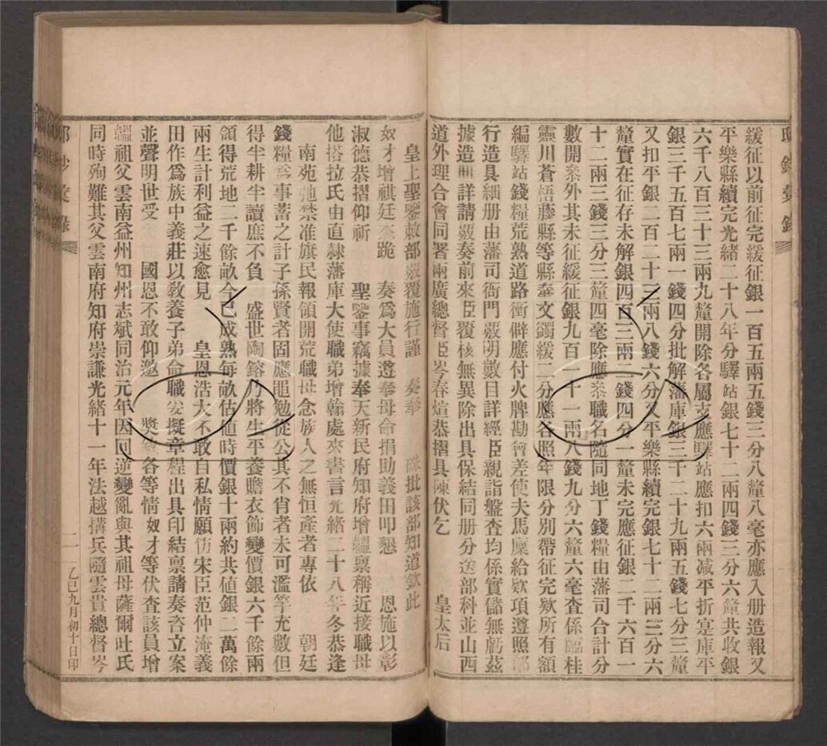 邸鈔彙錄
緩征以前征完緩征銀一百五兩五錢三分八釐八毫亦應入册造報又
平樂縣續完光緒二十八年分驛站銀七十二兩四錢三分六釐共收銀
六千八百三十三兩九釐開除各屬支應驛站應扣六兩減平折寔庫平
銀三千五百七兩一錢四分批解藩庫銀三千二十九兩五錢七分三釐
又扣平銀二百二十三兩八錢六分又平樂縣續完銀七十二兩三分六
釐實在征存未解銀四百三兩二錢四分一釐未完應征銀二千六百一
十二兩三錢三分三釐四毫除應叅職名隨同地丁錢糧由藩司合計分
數開叅外其未征緩征銀九百二十一兩八錢九分六釐六毫查係臨桂
靈川蒼梧藤縣等縣奉文蠲緩二分應各照年限分別帶征完欵所有額
編驛站錢糧荒熟道路衝僻應付火牌勘合差使夫馬糜給欵項遵照部
行造具細册由藩司衙門覈明數目詳經臣親詣盤查均係實儲無虧茲
據造册詳請覈奏前來臣覆核無異除出具保結同册分送部科並山西
道外理合會同署兩廣總督臣岑春煊恭摺具陳伏乞 皇太后
皇上聖鑒敕部覈覆施行謹 奏奉 硃批該部知道欽此
奴才增祺廷杰跪 奏爲大員遵奉母命捐助義田叩懇 恩施以彰
淑德恭摺仰祈 聖鑒事竊據奉天新民府知府增韞稟稱近接職母
他搭拉氏由直隸藩庫大使職弟增翰處來書言光緒二十八年冬恭逢
南苑弛禁准旗民報領開荒職母念族人之無恒產者專依 朝廷
錢糧爲事蓄之計子孫賢者固應黽勉從公其不肖者未可濫竽充數但
得半耕半讀庶不負 盛世陶鎔乃將生平養贍衣飾變價銀六千餘兩
領得荒地二千餘畝今已成熟每畝估值時價銀十兩約共値銀二萬餘
兩生計利益之速愈見 皇恩浩大不敢自私情願仿宋臣范仲淹義
田作爲族中義莊以敎養子弟命職妥擬章程出具印結稟請奏咨立案
並聲明世受 國恩不敢仰邀 奬敘各等情奴才等伏查該員增
韞祖父雲南益州知州志斌同治元年因回逆變亂與其祖母薩爾吐氏
同時殉難其父雲南府知府崇謙光緒十一年法越搆兵隨雲貴總督岑
邸鈔彙錄
二
乙巳九月初十日印